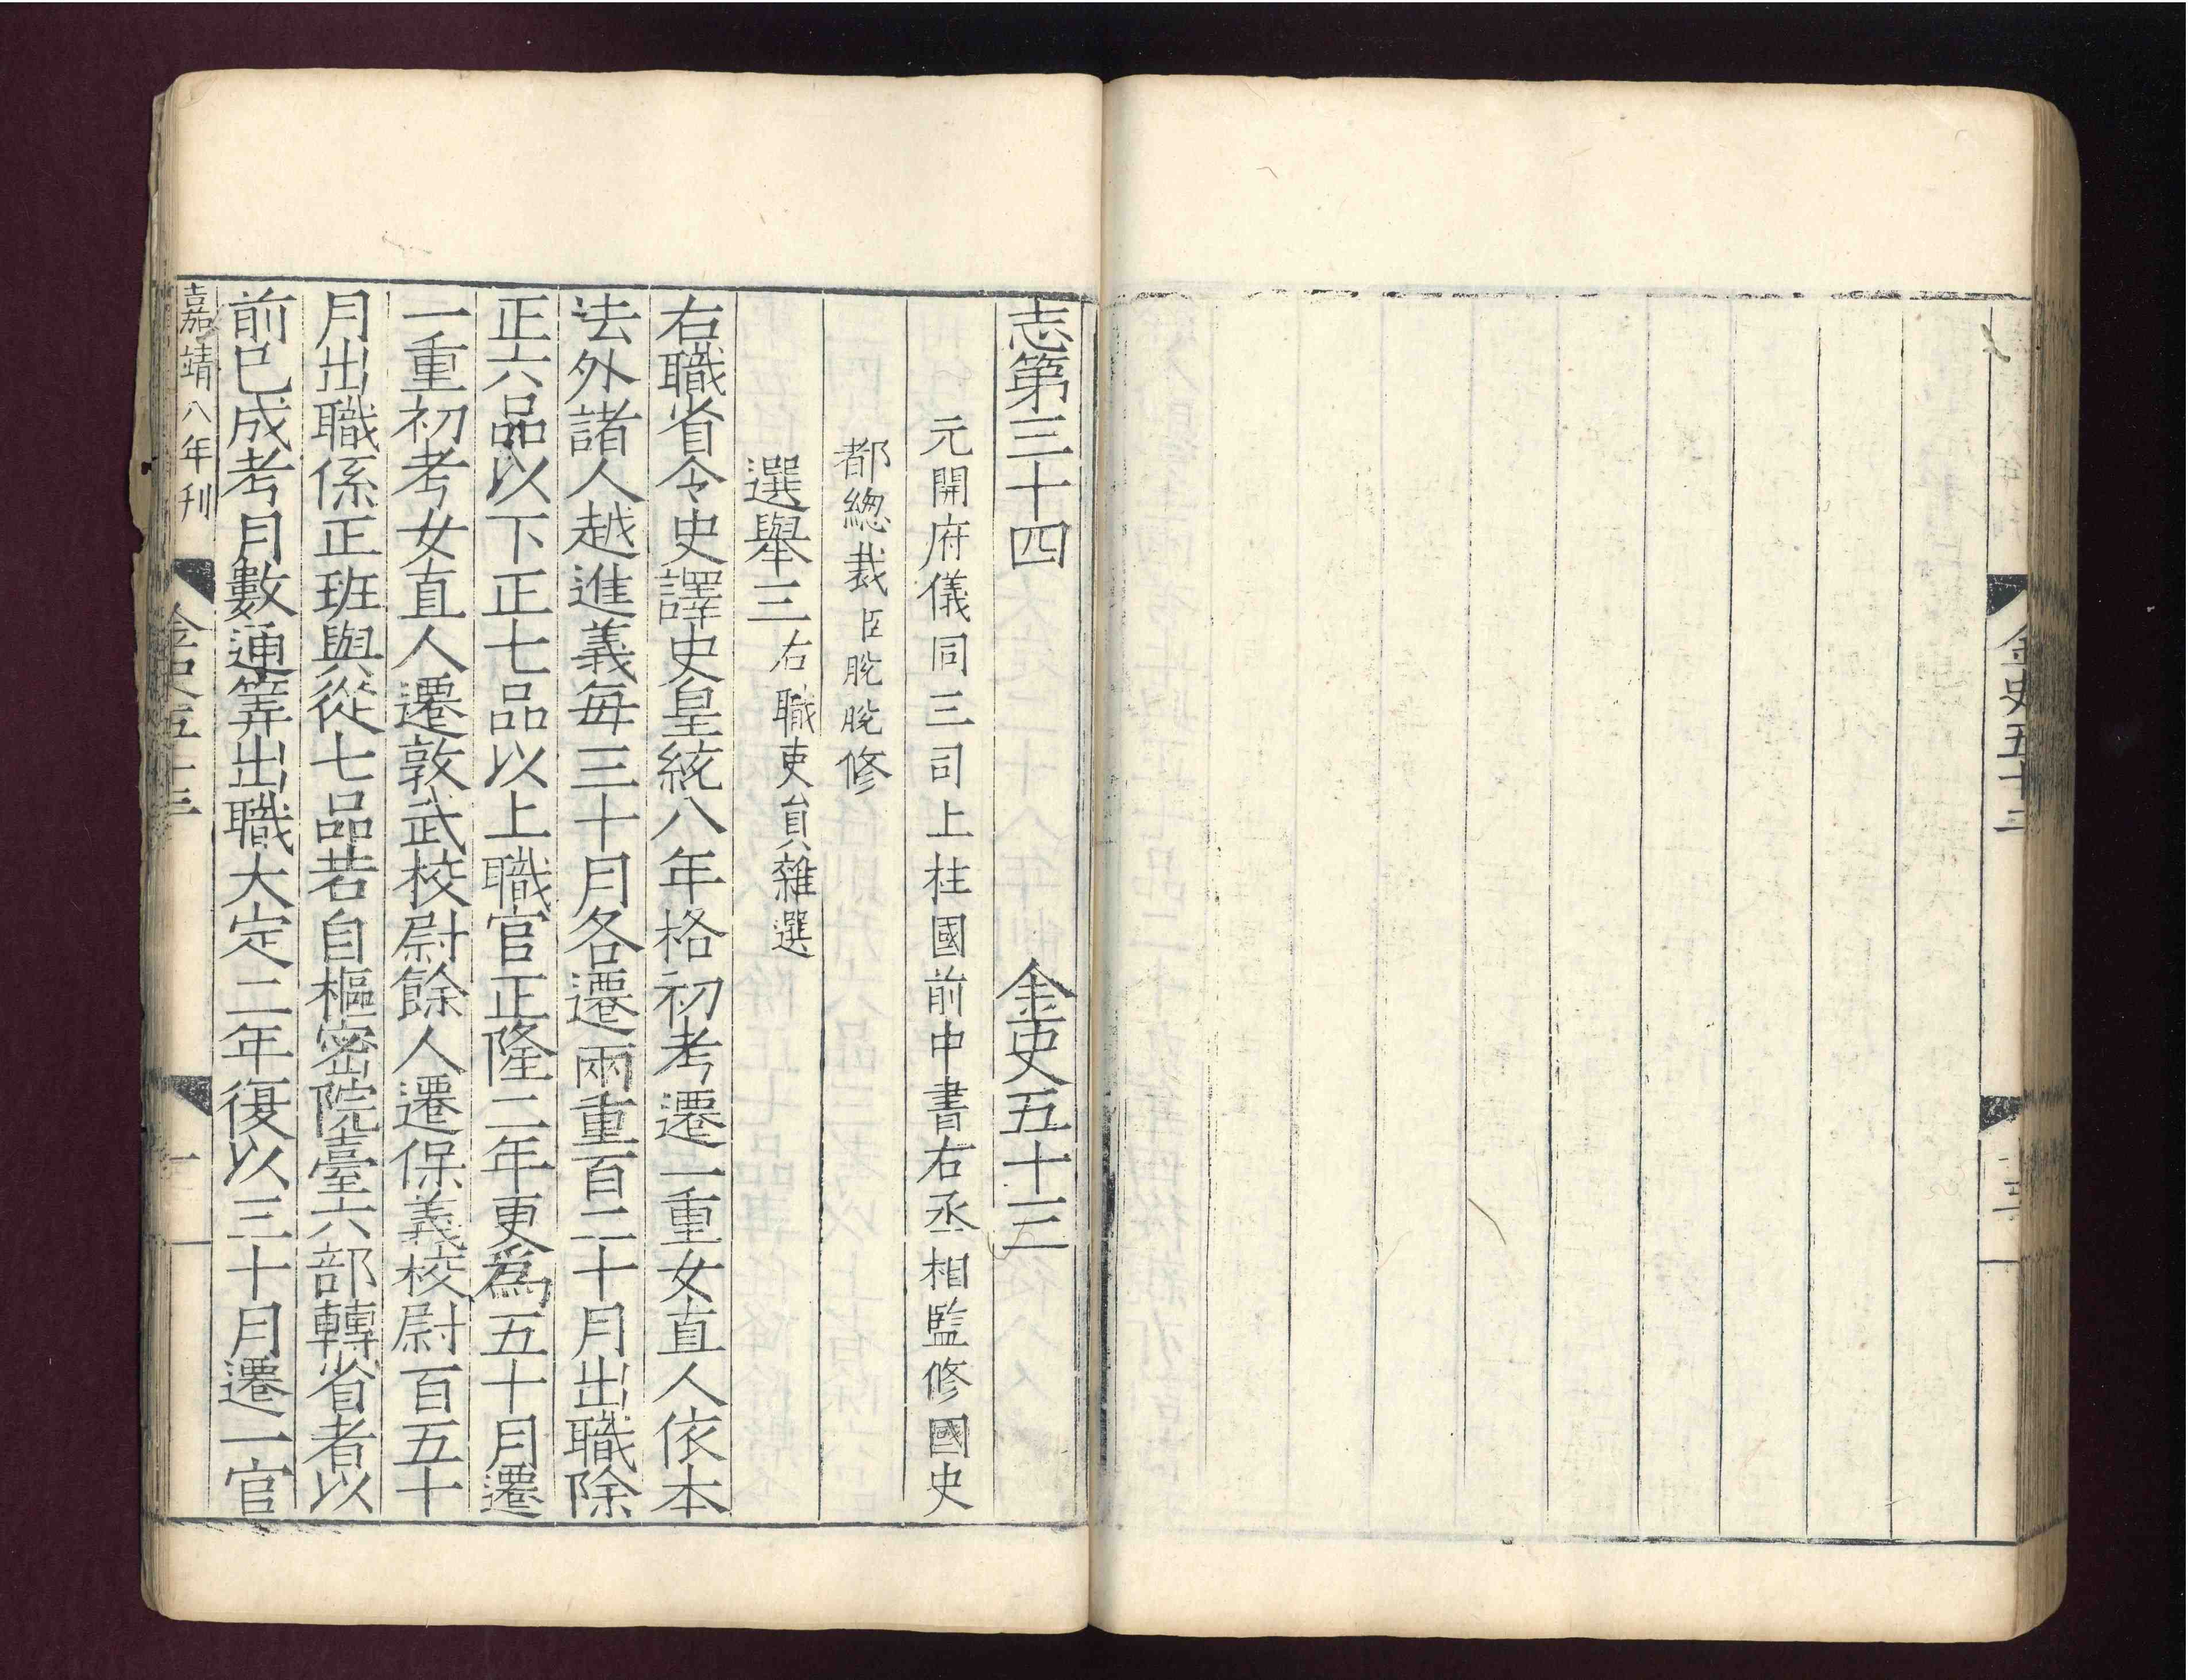 金史五十二
志第三十四 金史五十三
元開府儀同三司上柱國前中書右丞相監修國史
都緫裁臣脫脫修
選舉三右職吏員雜選
右職省令史譯史皇統八年格初考遷一重女直人依本
法外諸人越進義每三十月各遷兩重百二十月出職除
正六品以下正七品以上職官正隆二年更爲五十月遷
一重初考女直人遷敦武校尉餘人遷保義校尉百五十
月出職係正班與從七品若自樞密院臺六部轉省者以
前已成考月數通筭出職大定二年復以三十月遷一官
嘉靖八年刊 金史五十三 一